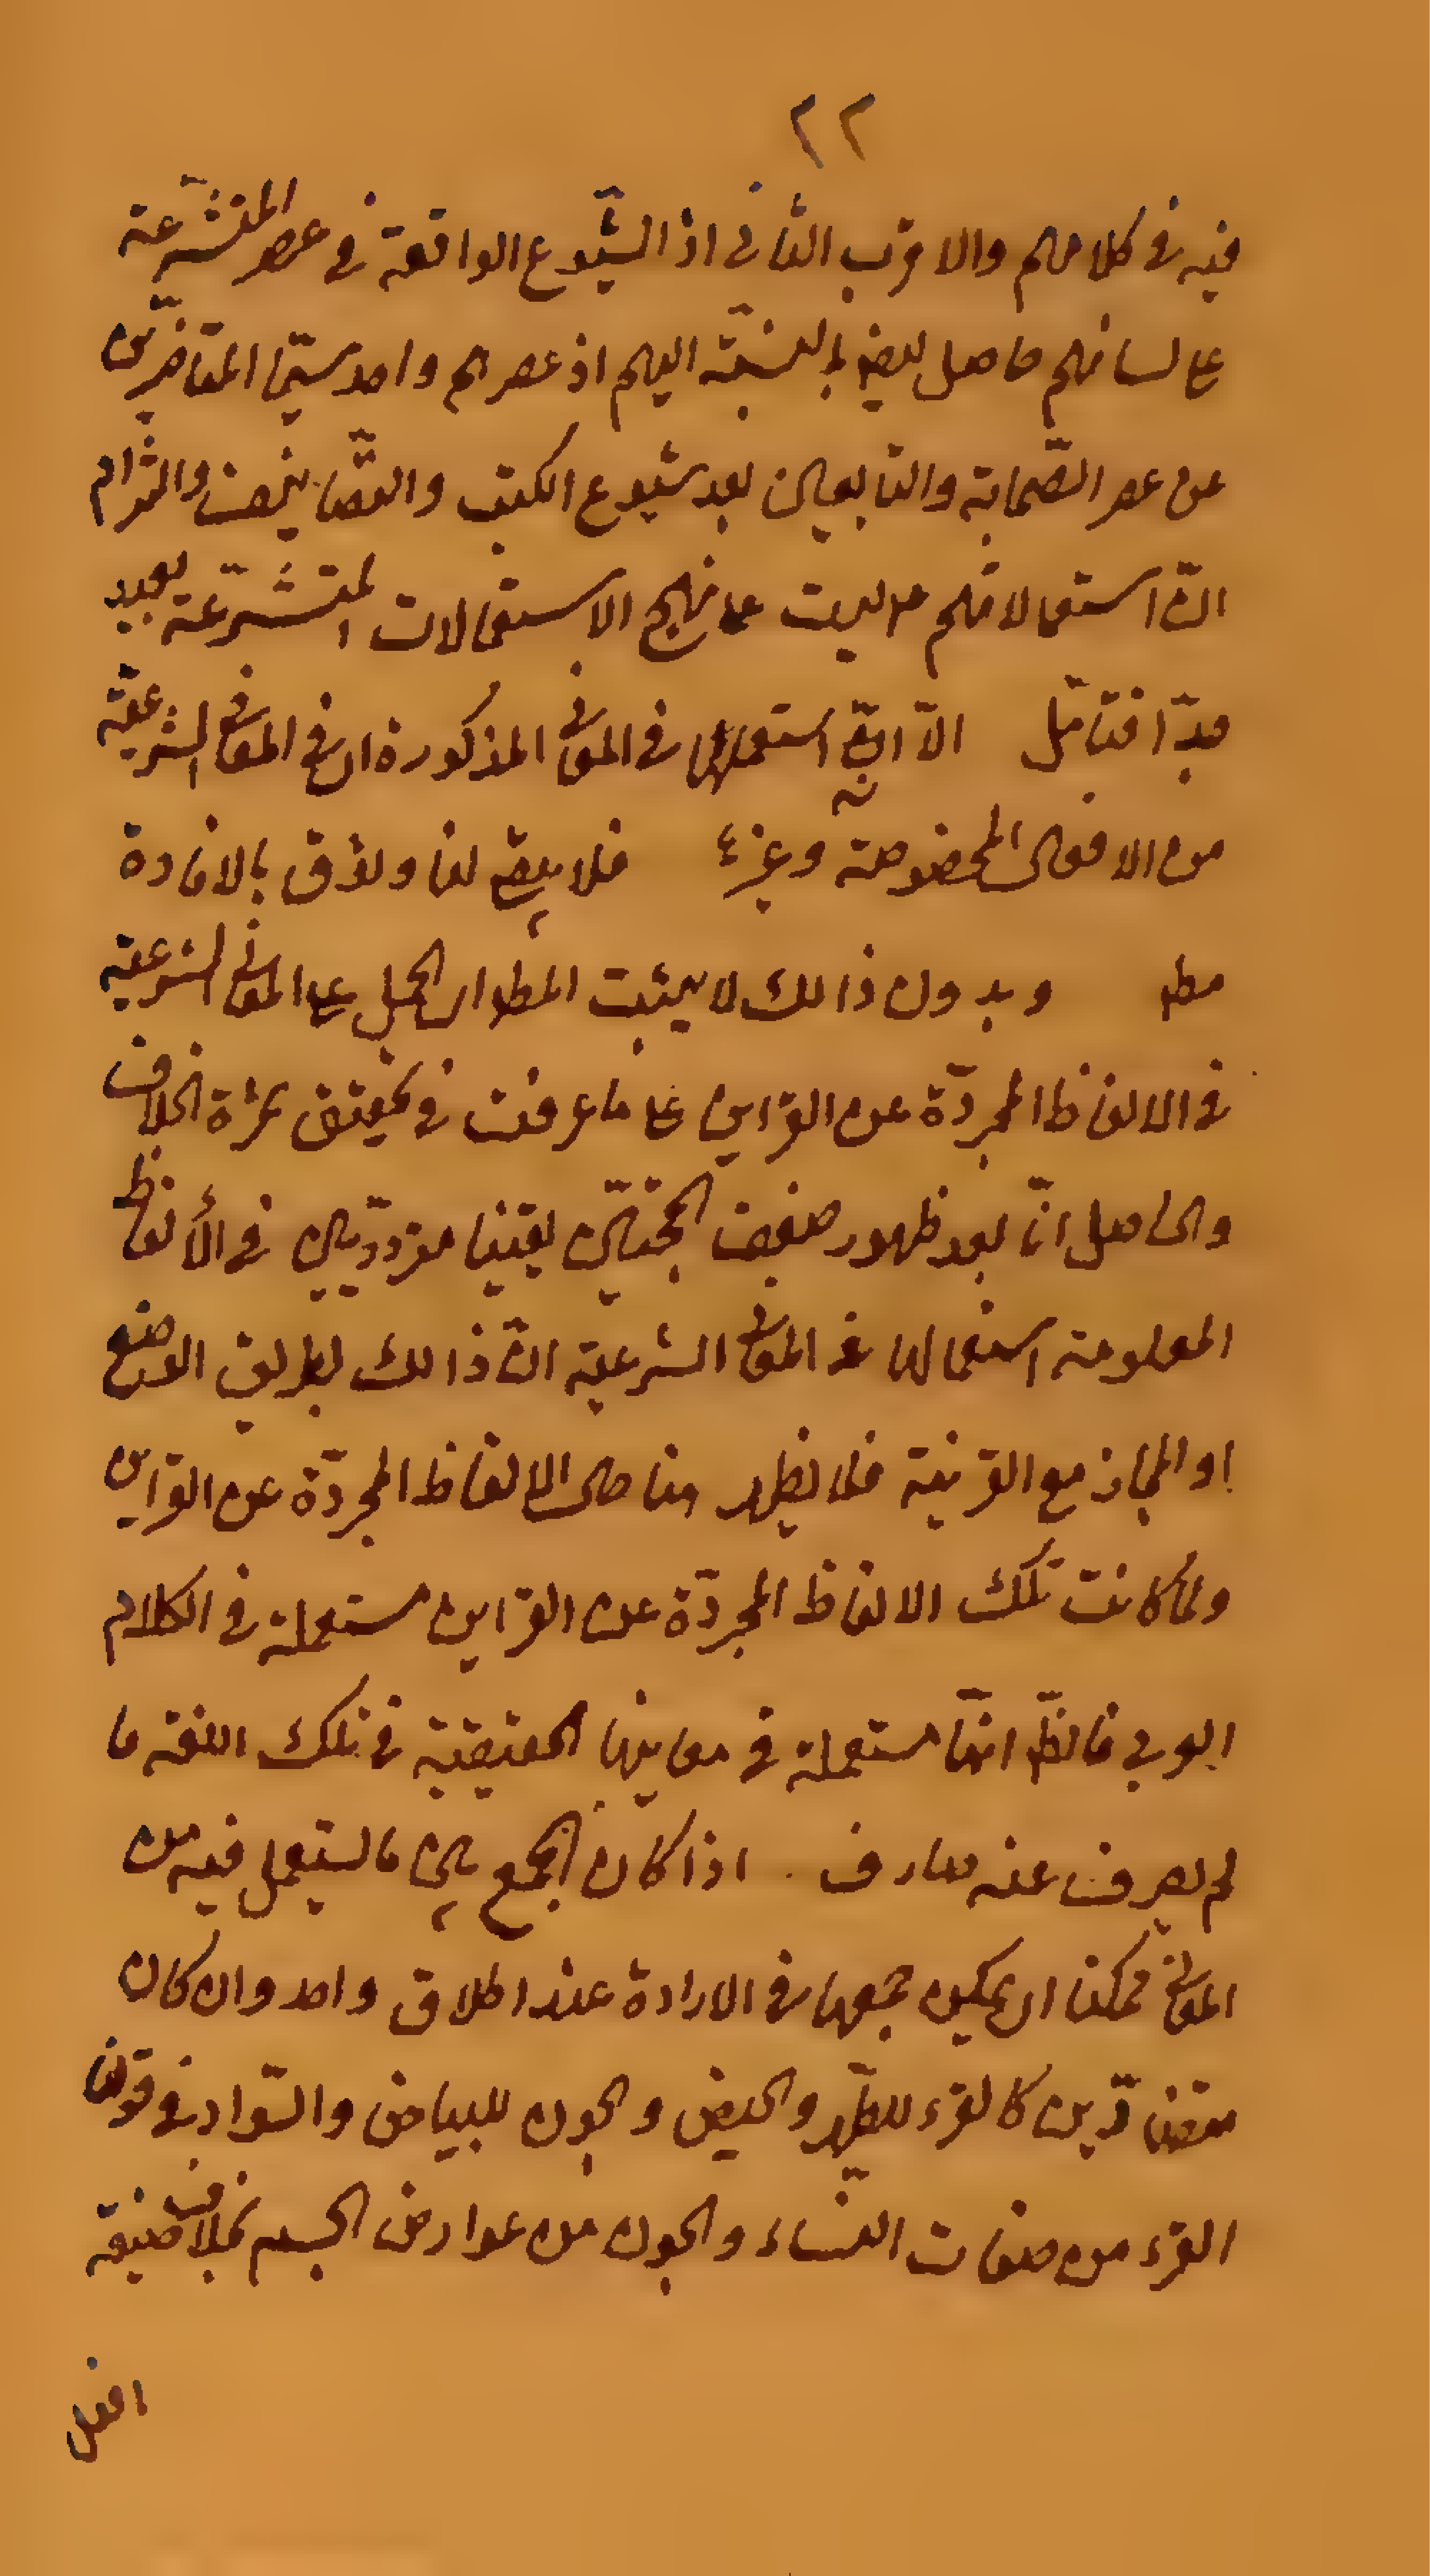 ٢٢
فيه في كلامهم والاقرب الثاني اذ الشّيوع الواقعة في عصر المتشرّعة
على لسانهم حاصل ايضا بالنسبّة اليهم اذ عصرهم واحد سيّما المتاخرّين
عن عصر الصّحابة والتابعين بعد شيوع الكتب والتّصانيف والتزام
انّ استعمالاتهم ليست على نهج الاستعمالات المتشرّعة بعيد
جدّا فتامّل الّا انّه استعملها في المعاني المذكورة اي في المعاني الشرعيّة
من الافعال المخصوصة وغيرها فلا يبقى لنا وثوق بالافادة
مطلقا وبدون ذالك لا يثبت المطلوب اي الحمل على المعاني الشرعية
في الالفاظ المجردّة عن القراين على ما عرفت في تحقيق ثمرة الخلاف
والحاصل انّا بعد ظهور ضعف الحجّتين بقينا متردّدين في الألفاظ
المعلومة استعمالها في المعاني الشرعية انّ ذالك بطريق الوضع
او المجاز مع القرينة فلا يظهر منا حال الالفاظ المجردّة عن القراين
ولما كانت تلك الالفاظ المجردّة عن القراين مستعملة في الكلام
العربي فالظّ انّها مستعملة في معاينها الحقيقية في تلك اللغة ما
لم يصرف عنه صارف . اذا كان الجمع بين ما يستعمل فيه من
المعاني ممكنا اي يمكن جمعها في الارادة عند اطلاق واحد وان كان
متضادّين كالقرء للطّهر والحيض والجون للبياض والسّواد في قولنا
القرء من صفات النساء والجون من عوارض الجسم بخلاف صيغة
افعل